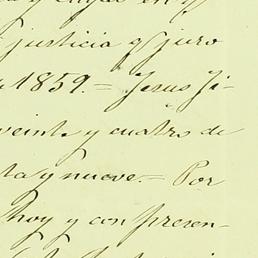 justicia y juro
1859. = Jesus Ji-
veinte y cuatro de
ta y nueve. = Por
hoy y con presen-